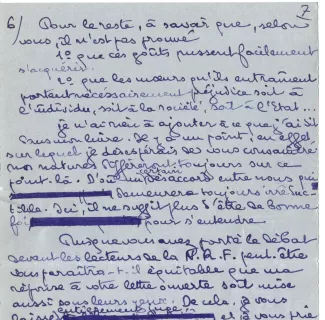 7
6/ Pour le reste, à savoir que, selon
vous, il n'est pas prouvé
1º que ces goûts puissent facilement
s'acquérir.
2º que les mœurs qu'ils entraînent
portent nécessairement préjudice soit à
l'individu, soit à la société, soit à l'Etat...
je n'ai rien à ajouter à ce que j'ai dit
dans mon livre. Il y a un point, en effet
sur lequel je désespérais de vous convaincre
nos natures différeront toujours sur ce
point-là. D'où un certain désaccord entre nous qui
demeurera toujours irréduc-
tible. Ici, il ne suffit plus d'être de bonne
foi pour s'entendre.
Puisque vous avez porté le débat
devant les lecteurs de la N.R.F. peut-être
vous paraîtra-t-il équitable que ma
réponse à votre lettre ouverte soit mise
aussi sous leurs yeux. De cela, à vous
entièrement juge
et à vous prie